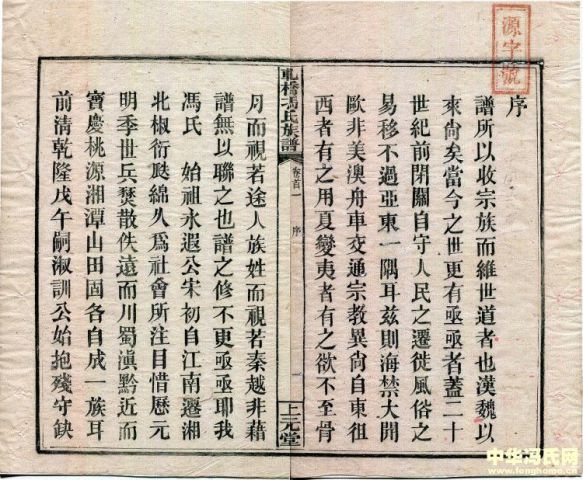 源字號
序
譜所以收宗族而維世道者也漢魏以
來尚矣當今之世更有亟亟者蓋二十
世紀前閉關自守人民之遷徙風俗之
易移不過亞東一隅耳茲則海禁大開
歐非美澳舟車交通宗教異尚自東徂
西者有之用夏變夷者有之欲不至骨
軋橋馮氏族譜
卷首一
序
一
上元堂
月而視若途人族姓而視若秦越非藉
譜無以聯之也譜之修不更亟亟耶我
馮氏 始祖永遐公宋初自江南遷湘
北椒衍瓞綿久為社會所注目惜歷元
明季世兵燹散佚遠而川蜀滇黔近而
寶慶桃源湘潭山田固各自成一族耳
前清乾隆戊午嗣淑訓公始抱殘守缺
中华冯氏网
www.fenghome.cn